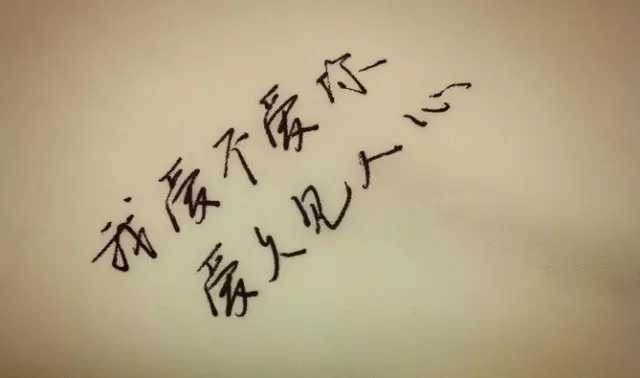 我爱不爱你
爱久见人心